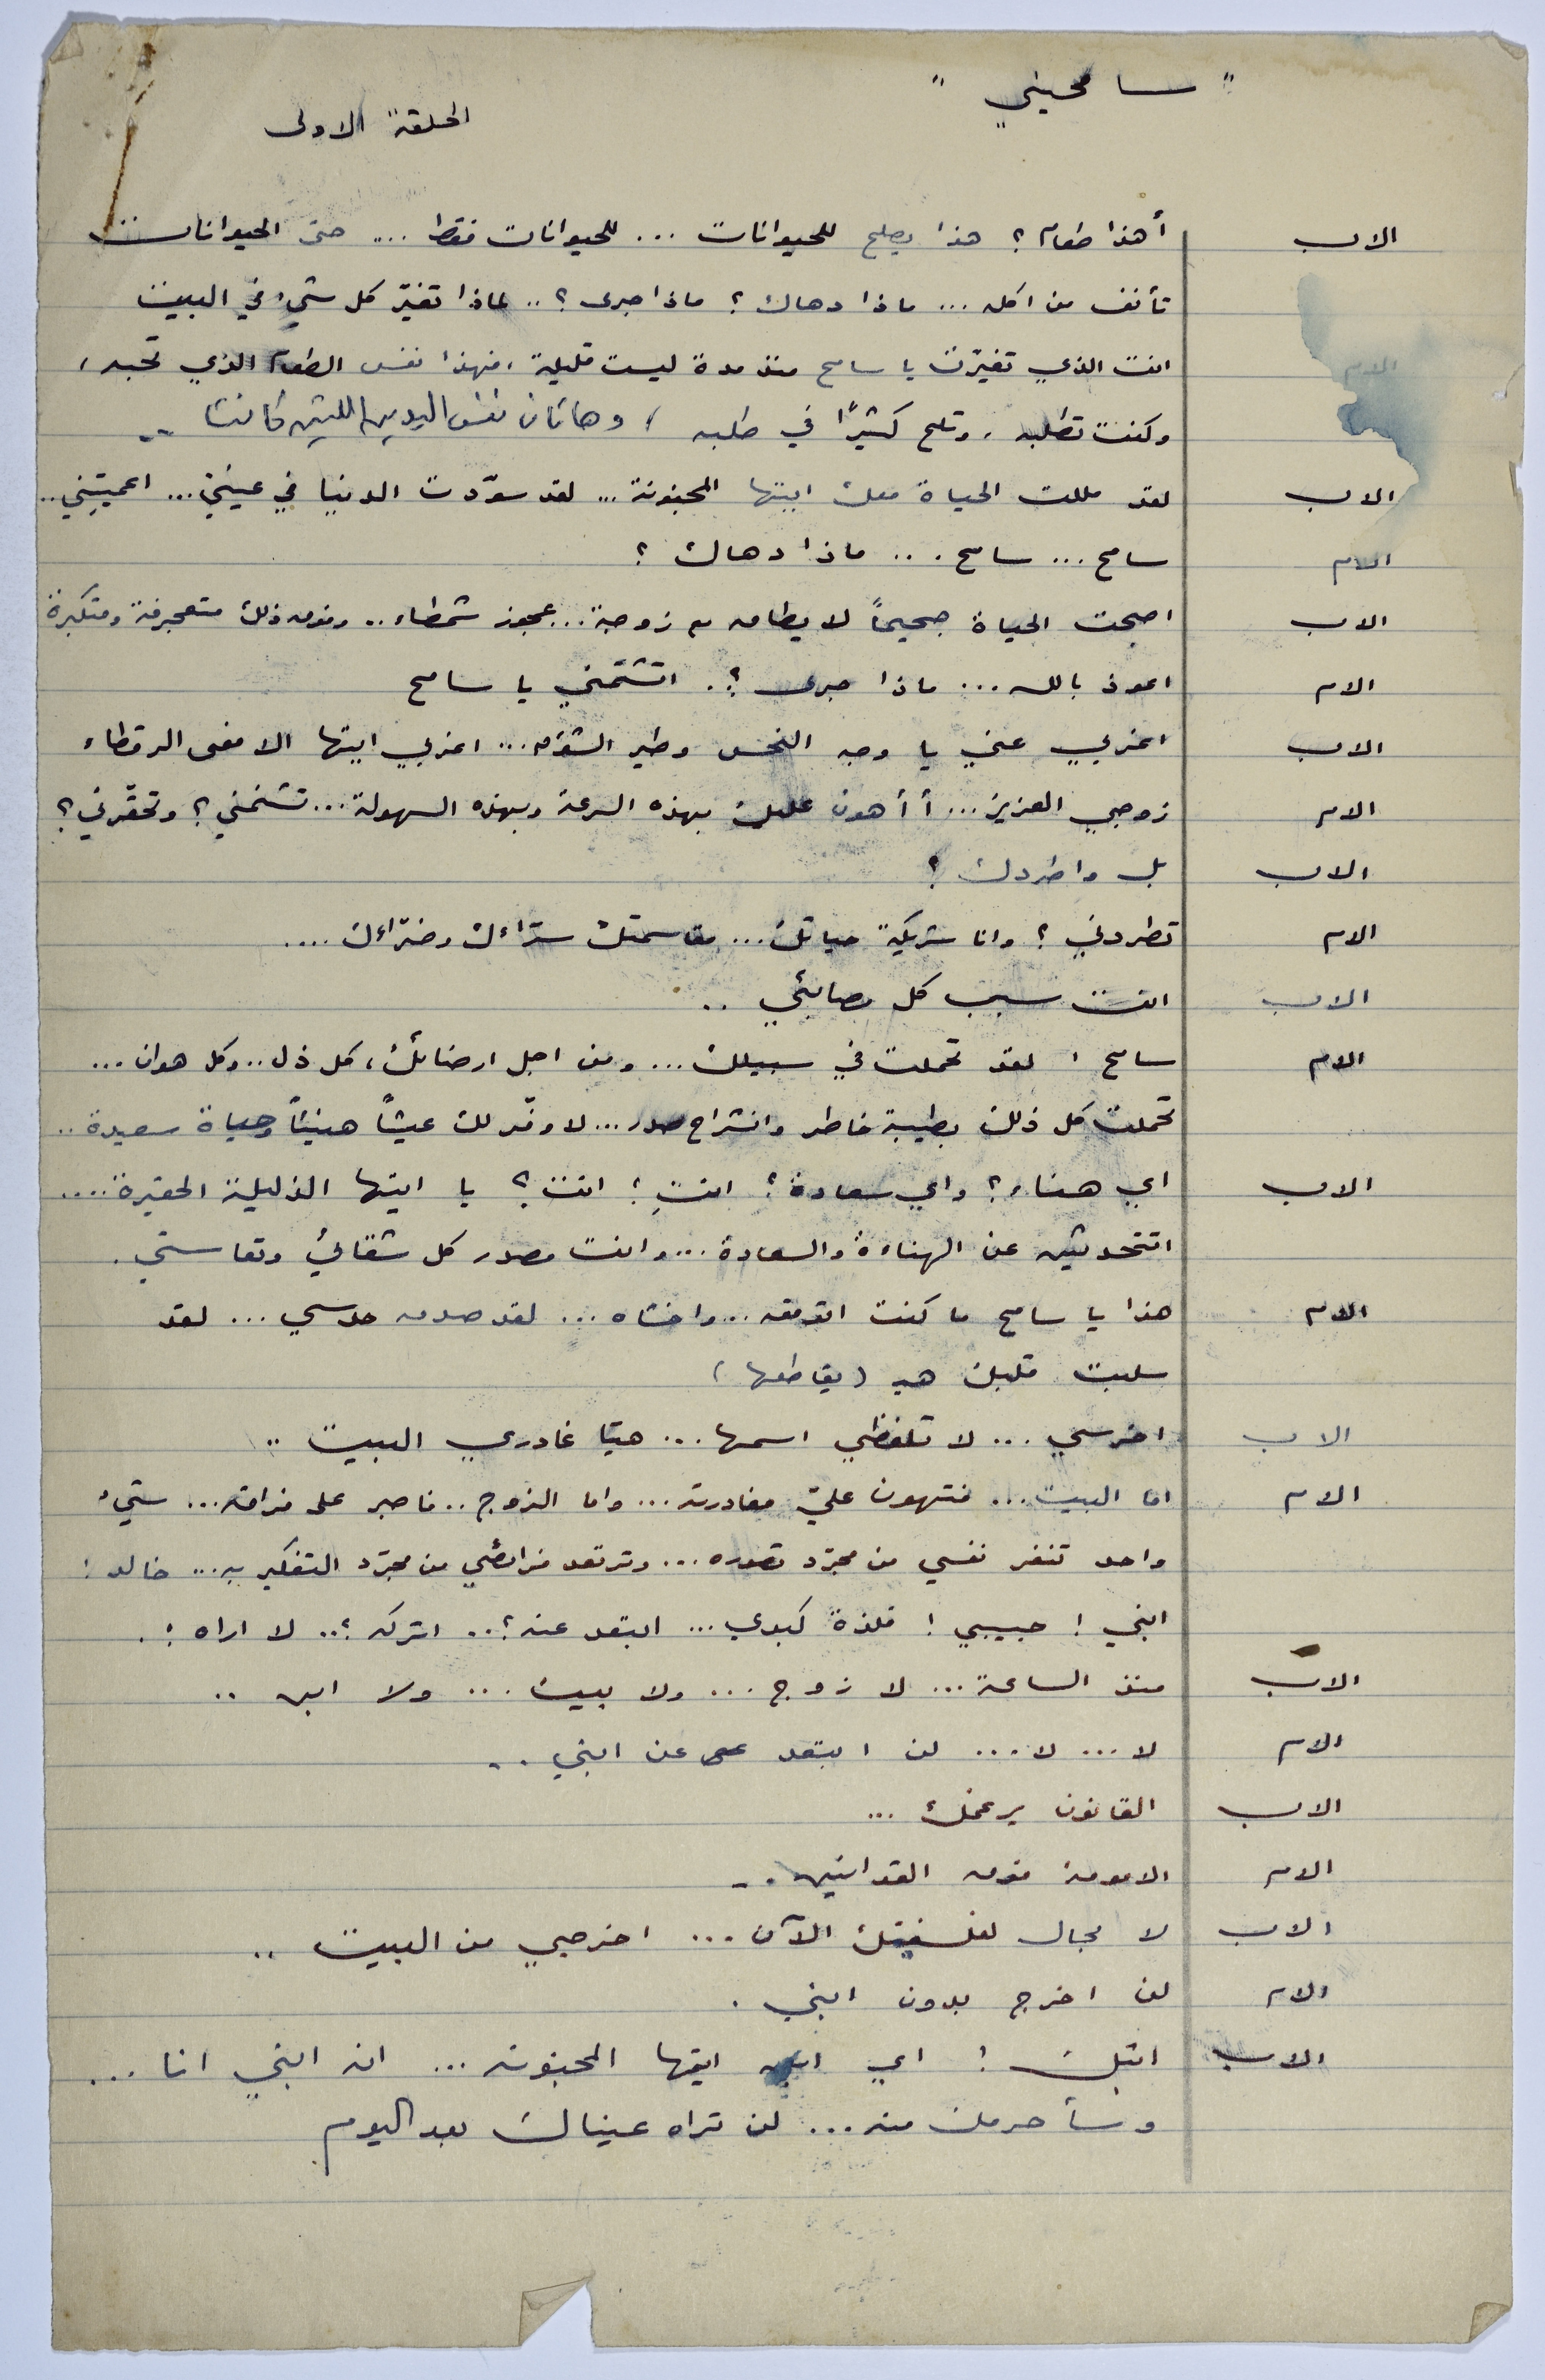 " سامحيني "
الحلقة الاولى
الاب أهذا طعام ؟ هذا يصلح للحيوانات ... للحيوانات فقط ... حتى الحيوانات
تأنف من اكله ... ماذا دهاك ؟ ماذا جرى ؟ .. لماذا تغيّر كل شيء في البيت
الام انت الذي تغيّرت يا سامح منذ مدة ليست قليلة ، فهذا نفس الطعام الذي تحبه ،
وكنت تطلبه ، وتلح كثيرًا في طلبه ، وهاتان نفس اليدين اللتين كانتا ..
الاب لقد مللت الحياة معك ايتها المجنونة ... لقد سوّدت الدنيا في عيني ... اعميتِني ..
الام سامح ... سامح ... ماذا دهاك ؟
الاب اصبحت الحياة جحيماً لا يطاق مع زوجة .. عجوز شمطاء .. وفوق ذلك متعجرفة ومتكبرة
الام اعوذ بالله ... ماذا جرى ؟ . اتشتمني يا سامح
الاب اغربي عني يا وجه النحس وطير الشؤم ... اغربي ايتها الافعى الرقطاء
الام زوجي العزيز ... أأهون عليك بهذه السرعة وبهذه السهولة ... تشتمني ؟ وتحقّرني ؟
الاب بل واطردك !
الام تطردني ؟ وانا شريكة حياتك ... مقاسمتك سرّاءك وضرّاءك ....
الاب انت سبب كل مصائبي ..
الام سامح ! لقد تحملت في سبيلك ... ومن اجل ارضائك ، كل ذل .. وكل هوان ...
تحملت كل ذلك بطيبة خاطر وانشراح صدر ... لاوفّر لك عيشاً هنيئاً وحياة سعيدة ..
الاب اي هناء ؟ واي سعادة ؟ انتِ ؟ انت ؟ يا ايتها الذليلة الحقيرة ....
اتتحدثين عن الهناءة والسعادة ... وانت مصدر كل شقائي وتعاستي .
الام هذا يا سامح ما كنت اتوقعه .. واخشاه ... لقد صدق حدسي ... لقد
سلبت قلبك هي ( يقاطعها )
الاب اخرسي ... لا تلفظي اسمها ... هيّا غادري البيت ..
الام اما البيت ... فتهون عليّ مغادرته ... واما الزوج .. فاصبر على فراقه ... شيء
واحد تنفر نفسي من مجرّد تصوره ... وترتعد فرائصي من مجرّد التفكير به ... خالد !
ابني ! حبيبي ! فلذة كبدي ... ابتعد عنه ؟ .. اتركه ؟ .. لا اراه ! .
الاب منذ الساعة ... لا زوج ... ولا بيت ... ولا ابن ..
الام لا ... لا ... لن ابتعد عن ابني ..
الاب القانون يرغمك ...
الام الامومة فوق القوانين ..
الاب لا مجال لفلسفتك الآن ... اخرجي من البيت ..
الام لن اخرج بدون ابني .
الاب ابنك ! اي ابن ايتها المجنونة ... انه ابني انا ...
وسأحرمك منه ... لن تراه عيناك بعد اليوم